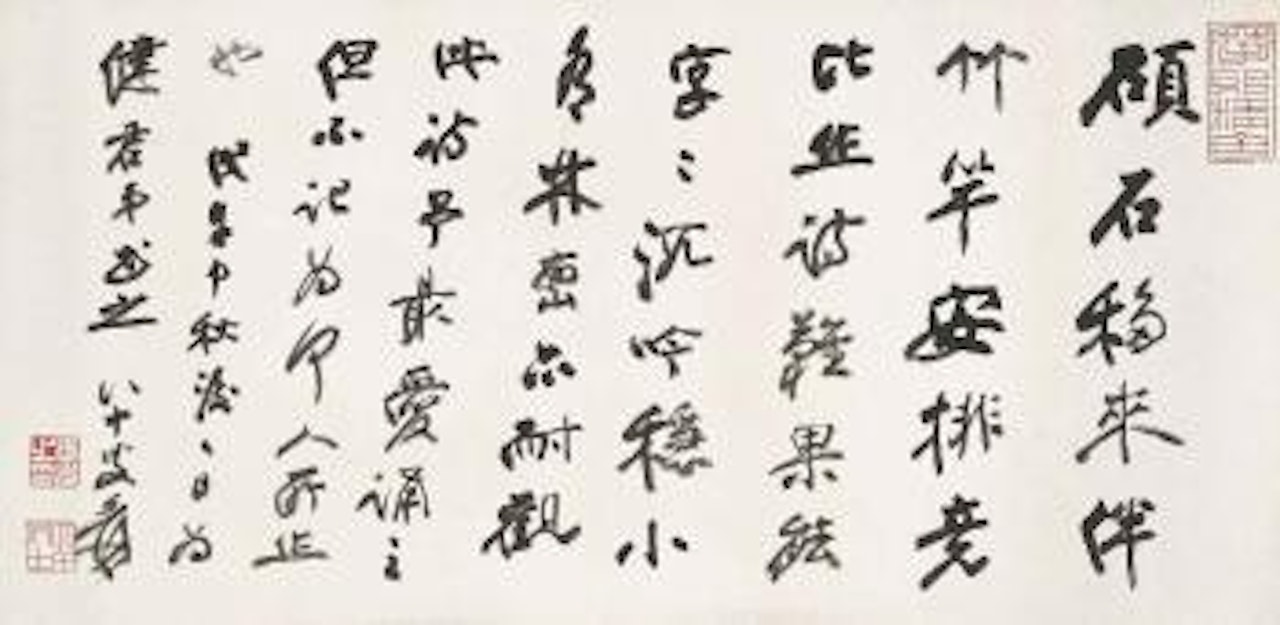 碩石移來伴
竹竿安排竟
比作詩難果能
字〻沉吟穩小
有林巒亦耐觀
此詩予最愛誦之
但不記為何人所作
也 戊午中秋後二日為
健君弟書之 八十叟爰